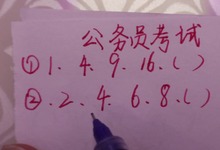 公务员考试
①1.4.9.16.( )
②.2.4.6.8.( )